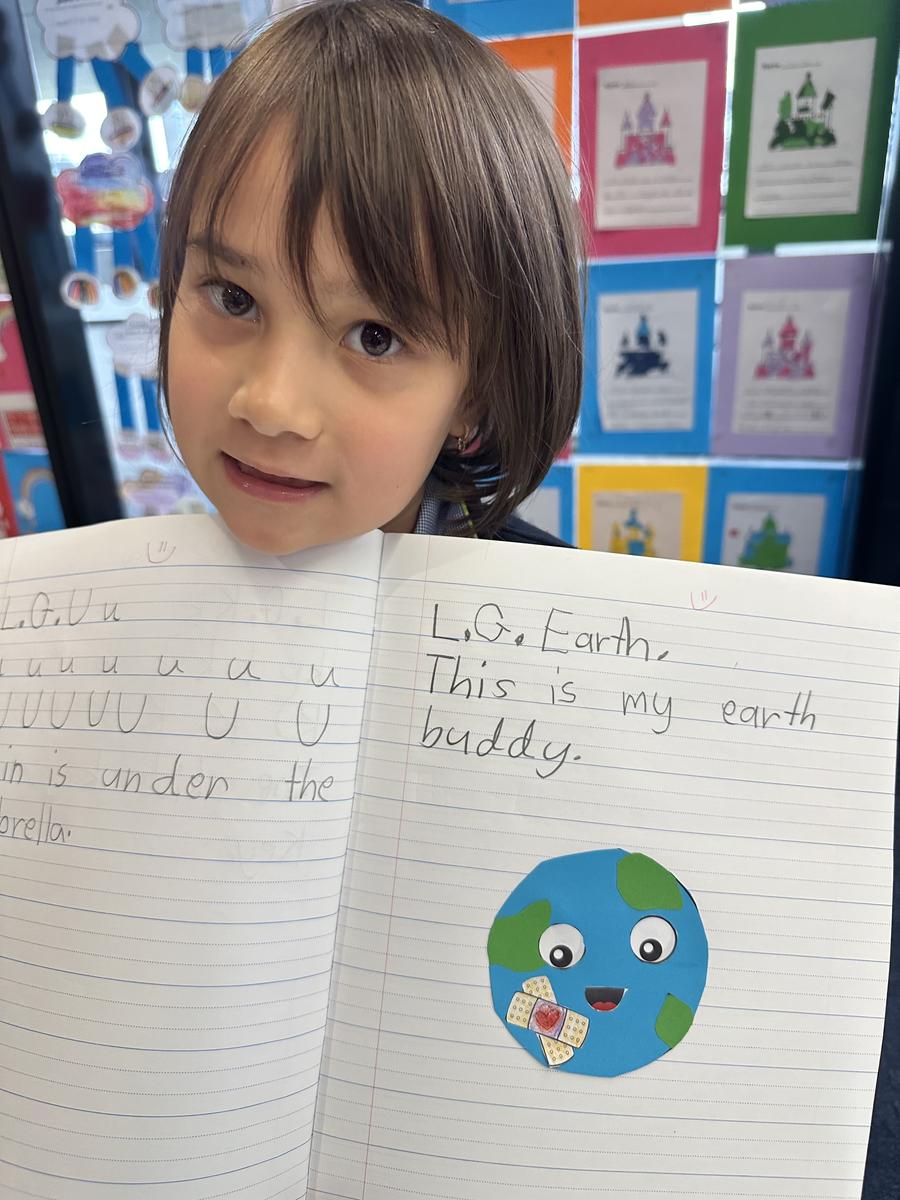 L.G.U u
u u u u u u u
U U U U U U U
in is under the
brella.
L.G. Earth.
This is my earth
buddy.